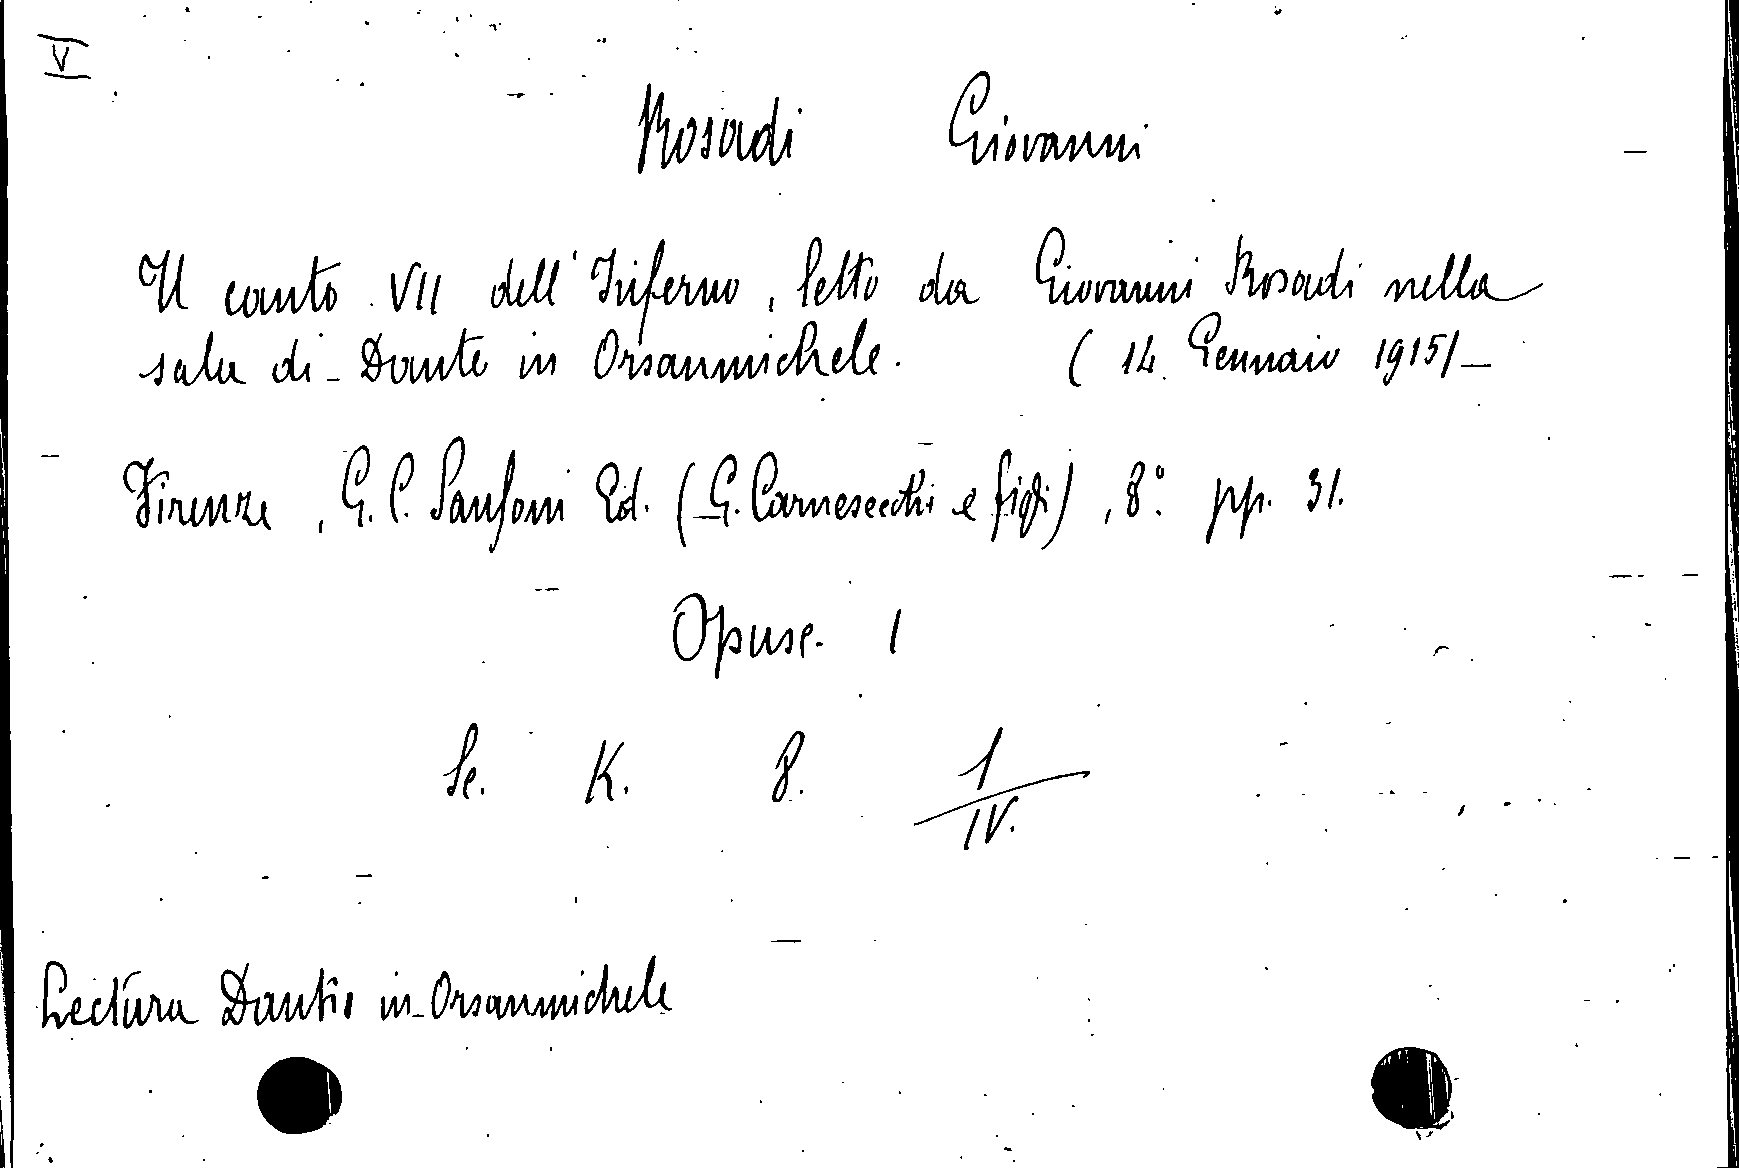 V
Rosadi Giovanni
Il canto VII dell'Inferno, letto da Giovanni Rosadi nella
sala di Dante in Orsanmichele. (14 Gennaio 1915/—
Firenze, G. C. Sansoni Ed. (G. Carnesecchi e figli), 8° pp. 31.
Opusc. 1
Sc. K. 8. 1/IV.
Lectura Dantis in Orsanmichele